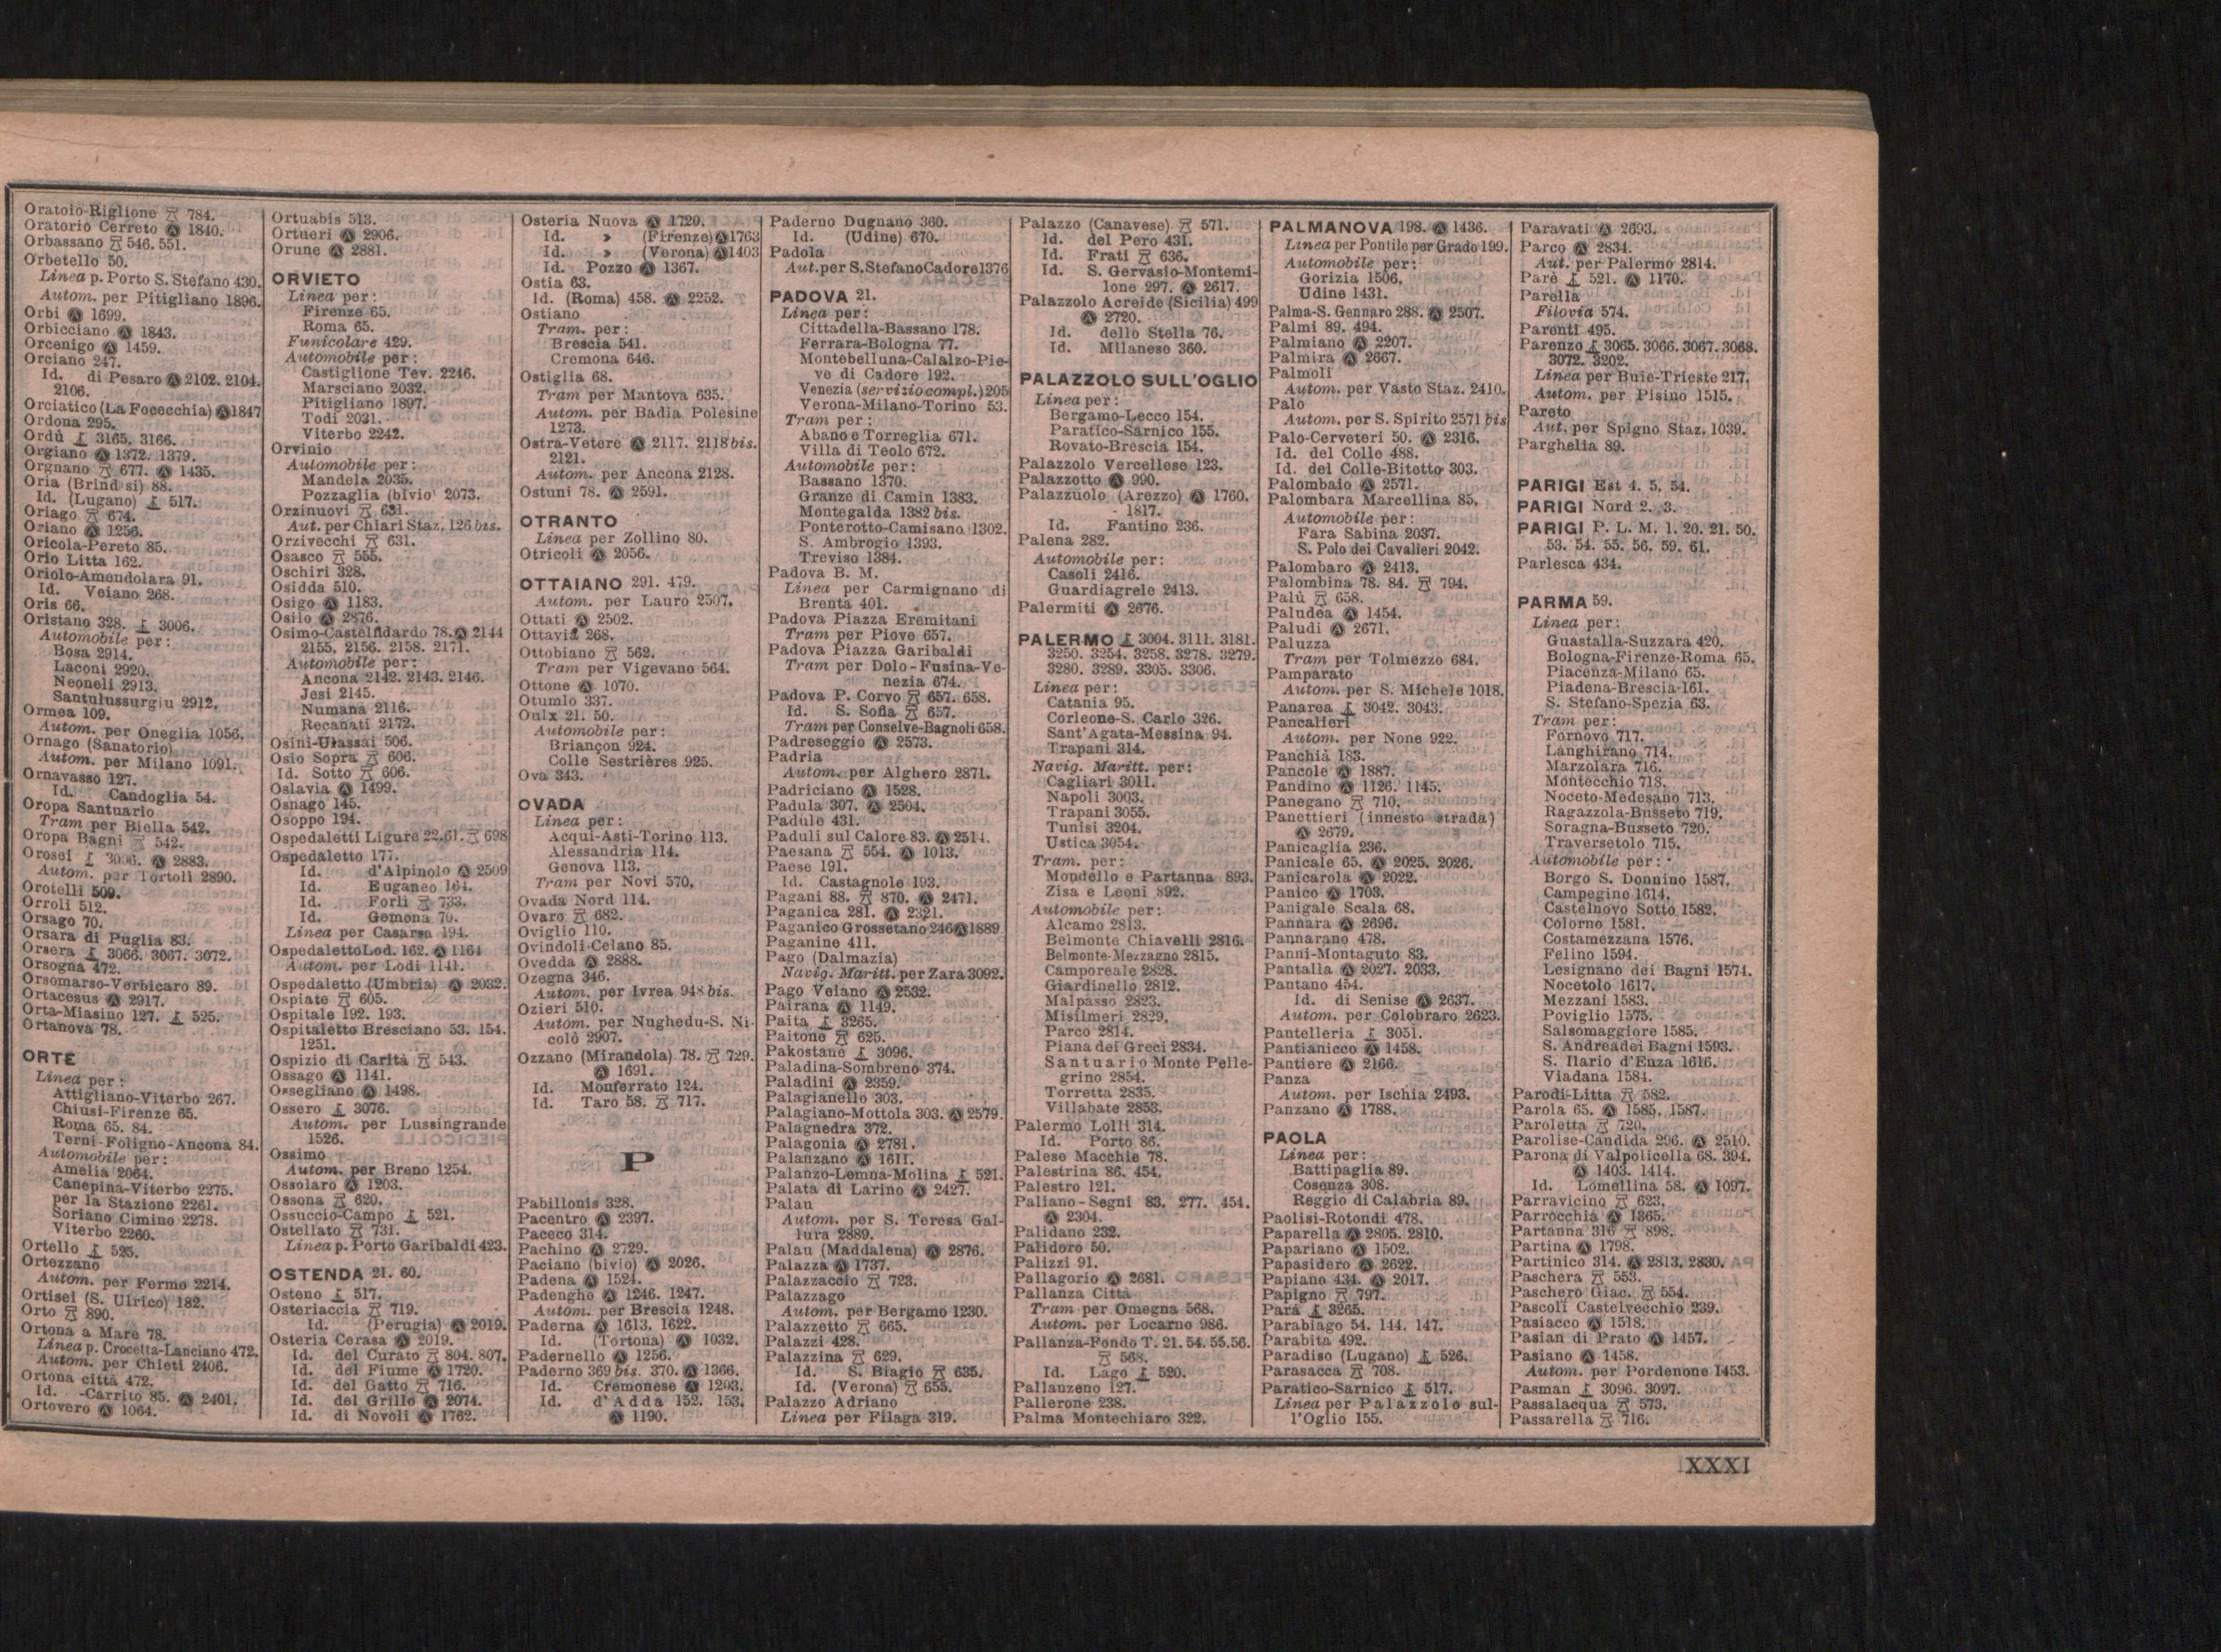 Oratoio-Riglione 784.
Oratorio Cerreto Ⓐ 1840.
Orbassano 546. 551.
Orbetello 50.
Linea p. Porto S. Stefano 430.
Autom. per Pitigliano 1896.
Orbi Ⓐ 1699.
Orbicciano Ⓐ 1843.
Orcenigo Ⓐ 1459.
Orciano 247.
Id. di Pesaro Ⓐ 2102. 2104.
2106.
Orciatico (La Focecchia) Ⓐ 1847
Ordona 295.
Ordù 3165. 3166.
Orgiano Ⓐ 1372. 1379.
Orgnano 677. Ⓐ 1435.
Oria (Brindisi) 88.
Id. (Lugano) 517.
Oriago 674.
Oriano Ⓐ 1256.
Oricola-Pereto 85.
Orio Litta 162.
Oriolo-Amendolara 91.
Id. Veiano 268.
Oris 66.
Oristano 328. 3006.
Automobile per:
Bosa 2914.
Laconi 2920.
Neoneli 2913.
Santulussurgiu 2912.
Ormea 109.
Autom. per Oneglia 1056.
Ornago (Sanatorio)
Autom. per Milano 1091.
Ornavasso 127.
Id. Candoglia 54.
Oropa Santuario
Tram per Biella 542.
Oropa Bagni 542.
Orosei 3006. Ⓐ 2883.
Autom. per Tortolì 2890.
Orotelli 509.
Orroli 512.
Orsago 70.
Orsara di Puglia 83.
Orsera 3066. 3067. 3072.
Orsogna 472.
Orsomarso-Verbicaro 89.
Ortacesus Ⓐ 2917.
Orta-Miasino 127. 525.
Ortanova 78.
ORTE
Linea per:
Attigliano-Viterbo 267.
Chiusi-Firenze 65.
Roma 65. 84.
Terni-Foligno-Ancona 84.
Automobile per:
Amelia 2064.
Canepina-Viterbo 2275.
per la Stazione 2261.
Soriano Cimino 2278.
Viterbo 2260.
Ortello 525.
Ortezzano
Autom. per Fermo 2214.
Ortisei (S. Ulrico) 182.
Orto 890.
Ortona a Mare 78.
Linea p. Crocetta-Lanciano 472.
Autom. per Chieti 2406.
Ortona città 472.
Id. -Carrito 85. Ⓐ 2401.
Ortovero Ⓐ 1064.
Ortuabis 513.
Ortueri Ⓐ 2906.
Orune Ⓐ 2881.
ORVIETO
Linea per:
Firenze 65.
Roma 65.
Funicolare 429.
Automobile per:
Castiglione Tev. 2246.
Marsciano 2032.
Pitigliano 1897.
Todi 2031.
Viterbo 2242.
Orvinio
Automobile per:
Mandela 2035.
Pozzaglia (bivio) 2073.
Orzinuovi 631.
Aut. per Chiari Staz. 126 bis.
Orzivecchi 631.
Osasco 555.
Oschiri 328.
Osidda 510.
Osigo Ⓐ 1183.
Osilo Ⓐ 2876.
Osimo-Castelfidardo 78. Ⓐ 2144
2155. 2156. 2158. 2171.
Automobile per:
Ancona 2142. 2143. 2146.
Jesi 2145.
Numana 2116.
Recanati 2172.
Osini-Ulassai 506.
Osio Sopra 606.
Id. Sotto 606.
Oslavia Ⓐ 1499.
Osnago 145.
Osoppo 194.
Ospedaletti Ligure 22. 61. 698
Ospedaletto 177.
Id. d'Alpinolo Ⓐ 2509
Id. Euganeo 164.
Id. Forlì 733.
Id. Gemona 70.
Linea per Casarsa 194.
Ospedaletto Lod. 162. Ⓐ 1164
Autom. per Lodi 1141.
Ospedaletto (Umbria) Ⓐ 2032.
Ospiate 605.
Ospitale 192. 193.
Ospitaletto Bresciano 53. 154.
1251.
Ospizio di Carità 543.
Ossago Ⓐ 1141.
Ossegliano Ⓐ 1498.
Ossero 3076.
Autom. per Lussingrande
1526.
Ossimo
Autom. per Breno 1254.
Ossolaro Ⓐ 1203.
Ossona 620.
Ossuccio-Campo 521.
Ostellato 731.
Linea p. Porto Garibaldi 423.
OSTENDA 21. 60.
Osteno 517.
Osteriaccia 719.
Id. (Perugia) Ⓐ 2019.
Osteria Cerasa Ⓐ 2019.
Id. del Curato 804. 807.
Id. del Fiume Ⓐ 1720.
Id. del Gatto 716.
Id. del Grillo Ⓐ 2074.
Id. di Novoli Ⓐ 1762.
Osteria Nuova Ⓐ 1729.
Id. » (Firenze) Ⓐ 1763
Id. » (Verona) Ⓐ 1403
Id. Pozzo Ⓐ 1367.
Ostia 63.
Id. (Roma) 458. Ⓐ 2252.
Ostiano
Tram. per:
Brescia 541.
Cremona 646.
Ostiglia 68.
Tram per Mantova 635.
Autom. per Badia Polesine
1273.
Ostra-Vetere Ⓐ 2117. 2118 bis.
2121.
Autom. per Ancona 2128.
Ostuni 78. Ⓐ 2591.
OTRANTO
Linea per Zollino 80.
Otricoli Ⓐ 2056.
OTTAIANO 291. 479.
Autom. per Lauro 2507.
Ottati Ⓐ 2502.
Ottavia 268.
Ottobiano 562.
Tram per Vigevano 564.
Ottone Ⓐ 1070.
Otumlo 337.
Oulx 21. 50.
Automobile per:
Briançon 924.
Colle Sestrières 925.
Ova 343.
OVADA
Linea per:
Acqui-Asti-Torino 113.
Alessandria 114.
Genova 113.
Tram per Novi 570.
Ovada Nord 114.
Ovaro 682.
Oviglio 110.
Ovindoli-Celano 85.
Ovedda Ⓐ 2888.
Ozegna 346.
Autom. per Ivrea 948 bis.
Ozieri 510.
Autom. per Nughedu-S. Ni-
colò 2907.
Ozzano (Mirandola) 78. 729.
Ⓐ 1691.
Id. Monferrato 124.
Id. Taro 58. 717.
P
Pabillonis 328.
Pacentro Ⓐ 2397.
Paceco 314.
Pachino Ⓐ 2729.
Paciano (bivio) Ⓐ 2026.
Padena Ⓐ 1524.
Padenghe Ⓐ 1246. 1247.
Autom. per Brescia 1248.
Paderna Ⓐ 1613. 1622.
Id. (Tortona) Ⓐ 1032.
Padernello Ⓐ 1256.
Paderno 369 bis. 370. Ⓐ 1366.
Id. Cremonese Ⓐ 1203.
Id. d'Adda 152. 153.
Ⓐ 1190.
Paderno Dugnano 360.
Id. (Udine) 670.
Padola
Aut. per S. Stefano Cadore 1376
PADOVA 21.
Linea per:
Cittadella-Bassano 178.
Ferrara-Bologna 77.
Montebelluna-Calalzo-Pie-
ve di Cadore 192.
Venezia (servizio compl.) 205
Verona-Milano-Torino 53.
Tram per:
Abano e Torreglia 671.
Villa di Teolo 672.
Automobile per:
Bassano 1370.
Granze di Camin 1383.
Montegalda 1382 bis.
Ponterotto-Camisano 1302.
S. Ambrogio 1393.
Treviso 1384.
Padova B. M.
Linea per Carmignano di
Brenta 401.
Padova Piazza Eremitani
Tram per Piove 657.
Padova Piazza Garibaldi
Tram per Dolo-Fusina-Ve-
nezia 674.
Padova P. Corvo 657. 658.
Id. S. Sofia 657.
Tram per Conselve-Bagnoli 658.
Padreseggio Ⓐ 2573.
Padria
Autom. per Alghero 2871.
Padriciano Ⓐ 1528.
Padula 307. Ⓐ 2504.
Padule 431.
Paduli sul Calore 83. Ⓐ 2514.
Paesana 554. Ⓐ 1013.
Paese 191.
Id. Castagnole 193.
Pagani 88. 870. Ⓐ 2471.
Paganica 281. Ⓐ 2321.
Paganico Grossetano 246 Ⓐ 1889
Paganine 411.
Pago (Dalmazia)
Navig. Maritt. per Zara 3092.
Pago Veiano Ⓐ 2532.
Pairana Ⓐ 1149.
Paita 3265.
Paitone 625.
Pakostane 3096.
Paladina-Sombreno 374.
Paladini Ⓐ 2359.
Palagianello 303.
Palagiano-Mottola 303. Ⓐ 2579.
Palagnedra 372.
Palagonia Ⓐ 2781.
Palanzano Ⓐ 1611.
Palanzo-Lemna-Molina 521.
Palata di Larino Ⓐ 2427.
Palau
Autom. per S. Teresa Gal-
lura 2889.
Palau (Maddalena) Ⓐ 2876.
Palazza Ⓐ 1737.
Palazzaccio 723.
Palazzago
Autom. per Bergamo 1230.
Palazzetto 665.
Palazzi 428.
Palazzina 629.
Id. S. Biagio 635.
Id. (Verona) 655.
Palazzo Adriano
Linea per Filaga 319.
Palazzo (Canavese) 571.
Id. del Pero 431.
Id. Frati 636.
Id. S. Gervasio-Montemi-
lone 297. Ⓐ 2617.
Palazzolo Acreide (Sicilia) 499
Ⓐ 2720.
Id. dello Stella 76.
Id. Milanese 360.
PALAZZOLO SULL'OGLIO
Linea per:
Bergamo-Lecco 154.
Paratico-Sarnico 155.
Rovato-Brescia 154.
Palazzolo Vercellese 123.
Palazzotto Ⓐ 990.
Palazzuolo (Arezzo) Ⓐ 1760.
1817.
Id. Fantino 236.
Palena 282.
Automobile per:
Casoli 2416.
Guardiagrele 2413.
Palermiti Ⓐ 2676.
PALERMO 3004. 3111. 3181.
3250. 3254. 3258. 3278. 3279.
3280. 3289. 3305. 3306.
Linea per:
Catania 95.
Corleone-S. Carlo 326.
Sant'Agata-Messina 94.
Trapani 314.
Navig. Maritt. per:
Cagliari 3011.
Napoli 3003.
Trapani 3055.
Tunisi 3204.
Ustica 3054.
Tram. per:
Mondello e Partanna 893.
Zisa e Leoni 892.
Automobile per:
Alcamo 2813.
Belmonte Chiavelli 2816.
Belmonte-Mezzagno 2815.
Camporeale 2828.
Giardinello 2812.
Malpasso 2823.
Misilmeri 2829.
Parco 2814.
Piana dei Greci 2834.
Santuario Monte Pelle-
grino 2854.
Torretta 2835.
Villabate 2853.
Palermo Lolli 314.
Id. Porto 86.
Palese Macchie 78.
Palestrina 86. 454.
Palestro 121.
Paliano-Segni 83. 277. 454.
Ⓐ 2304.
Palidano 232.
Palidoro 50.
Palizzi 91.
Pallagorio Ⓐ 2681.
Pallanza Città
Tram per Omegna 568.
Autom. per Locarno 986.
Pallanza-Fondo T. 21. 54. 55. 56.
568.
Id. Lago 520.
Pallanzeno 127.
Pallerone 238.
Palma Montechiaro 322.
PALMANOVA 198. Ⓐ 1436.
Linea per Pontile per Grado 199.
Automobile per:
Gorizia 1506.
Udine 1431.
Palma-S. Gennaro 288. Ⓐ 2507.
Palmi 89. 494.
Palmiano Ⓐ 2207.
Palmira Ⓐ 2667.
Palmoli
Autom. per Vasto Staz. 2410.
Palo
Autom. per S. Spirito 2571 bis
Palo-Cerveteri 50. Ⓐ 2316.
Id. del Colle 488.
Id. del Colle-Bitetto 303.
Palombaio Ⓐ 2571.
Palombara Marcellina 85.
Automobile per:
Fara Sabina 2037.
S. Polo dei Cavalieri 2042.
Palombaro Ⓐ 2413.
Palombina 78. 84. 794.
Palù 658.
Paludea Ⓐ 1454.
Paludi Ⓐ 2671.
Paluzza
Tram per Tolmezzo 684.
Pamparato
Autom. per S. Michele 1018.
Panarea 3042. 3043.
Pancalieri
Autom. per None 922.
Panchià 183.
Pancole Ⓐ 1887.
Pandino Ⓐ 1126. 1145.
Panegano 710.
Panettieri (innesto strada)
Ⓐ 2679.
Panicaglia 236.
Panicale 65. Ⓐ 2025. 2026.
Panicarola Ⓐ 2022.
Panico Ⓐ 1703.
Panigale Scala 68.
Pannara Ⓐ 2696.
Pannarano 478.
Panni-Montaguto 83.
Pantalla Ⓐ 2027. 2033.
Pantano 454.
Id. di Senise Ⓐ 2637.
Autom. per Colobraro 2623.
Pantelleria 3051.
Pantianicco Ⓐ 1458.
Pantiere Ⓐ 2166.
Panza
Autom. per Ischia 2493.
Panzano Ⓐ 1788.
PAOLA
Linea per:
Battipaglia 89.
Cosenza 308.
Reggio di Calabria 89.
Paolisi-Rotondi 478.
Paparella Ⓐ 2805. 2810.
Papariano Ⓐ 1502.
Papasidero Ⓐ 2622.
Papiano 434. Ⓐ 2017.
Papigno 797.
Parà 3265.
Parabiago 54. 144. 147.
Parabita 492.
Paradiso (Lugano) 526.
Parasacca 708.
Paratico-Sarnico 517.
Linea per Palazzolo sul-
l'Oglio 155.
Paravati Ⓐ 2693.
Parco Ⓐ 2834.
Aut. per Palermo 2814.
Parè 521. Ⓐ 1170.
Parella
Filovia 574.
Parenti 495.
Parenzo 3065. 3066. 3067. 3068.
3072. 3202.
Linea per Buie-Trieste 217.
Autom. per Pisino 1515.
Pareto
Aut. per Spigno Staz. 1039.
Parghelia 89.
PARIGI Est 4. 5. 54.
PARIGI Nord 2. 3.
PARIGI P. L. M. 1. 20. 21. 50.
53. 54. 55. 56. 59. 61.
Parlesca 434.
PARMA 59.
Linea per:
Guastalla-Suzzara 420.
Bologna-Firenze-Roma 65.
Piacenza-Milano 65.
Piadena-Brescia 161.
S. Stefano-Spezia 63.
Tram per:
Fornovo 717.
Langhirano 714.
Marzolara 716.
Montecchio 718.
Noceto-Medesano 713.
Ragazzola-Busseto 719.
Soragna-Busseto 720.
Traversetolo 715.
Automobile per:
Borgo S. Donnino 1587.
Campegine 1614.
Castelnovo Sotto 1582.
Colorno 1581.
Costamezzana 1576.
Felino 1594.
Lesignano dei Bagni 1574.
Nocetolo 1617.
Mezzani 1583.
Poviglio 1575.
Salsomaggiore 1585.
S. Andrea dei Bagni 1593.
S. Ilario d'Enza 1616.
Viadana 1584.
Parodi-Litta 582.
Parola 65. Ⓐ 1585. 1587.
Paroletta 720.
Parolise-Candida 296. Ⓐ 2510.
Parona di Valpolicella 68. 394.
Ⓐ 1403. 1414.
Id. Lomellina 58. Ⓐ 1097.
Parravicino 623.
Parrocchia Ⓐ 1365.
Partanna 316 898.
Partina Ⓐ 1798.
Partinico 314. Ⓐ 2813. 2830.
Paschera 553.
Paschero Giac. 554.
Pascoli Castelvecchio 239.
Pasiacco Ⓐ 1518.
Pasian di Prato Ⓐ 1457.
Pasiano Ⓐ 1458.
Autom. per Pordenone 1453.
Pasman 3096. 3097.
Passalacqua 573.
Passarella 716.
XXXI